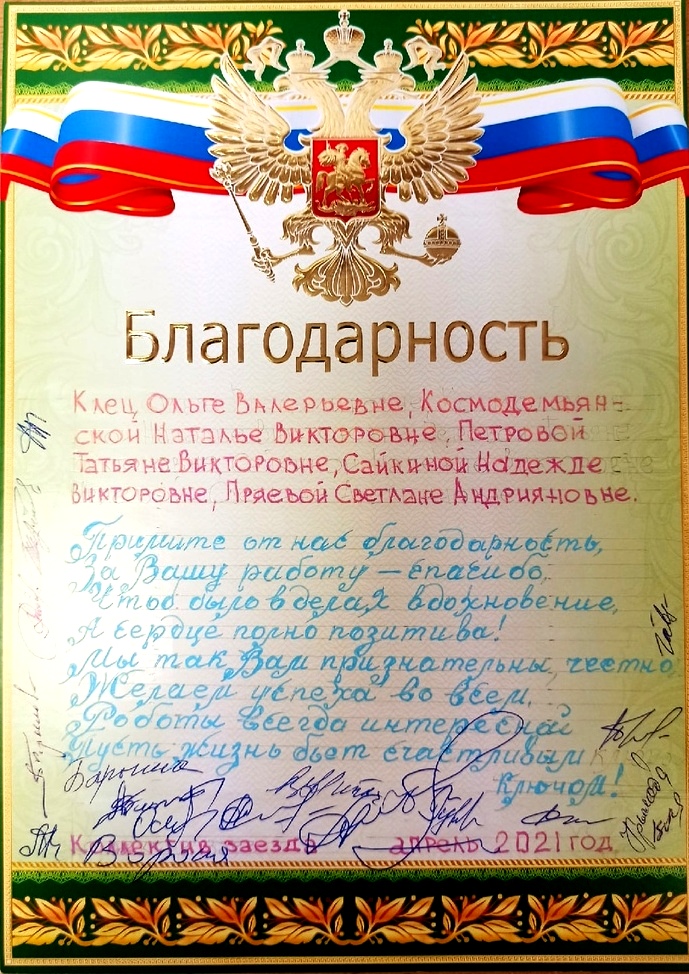 Благодарность
Клец Ольге Валерьевне, Космодемьян-
ской Наталье Викторовне, Петровой
Татьяне Викторовне, Сайкиной Надежде
Викторовне, Пряевой Светлане Андрияновне.
Примите от нас благодарность,
За Вашу работу – спасибо,
Чтоб было в делах вдохновение,
А сердце полно позитива!
Мы так Вам признательны, честно,
Желаем успеха во всем,
Работы всегда интересной
Пусть жизнь бьет счастливым
ключом!
Коллектив заезда апрель 2021 год